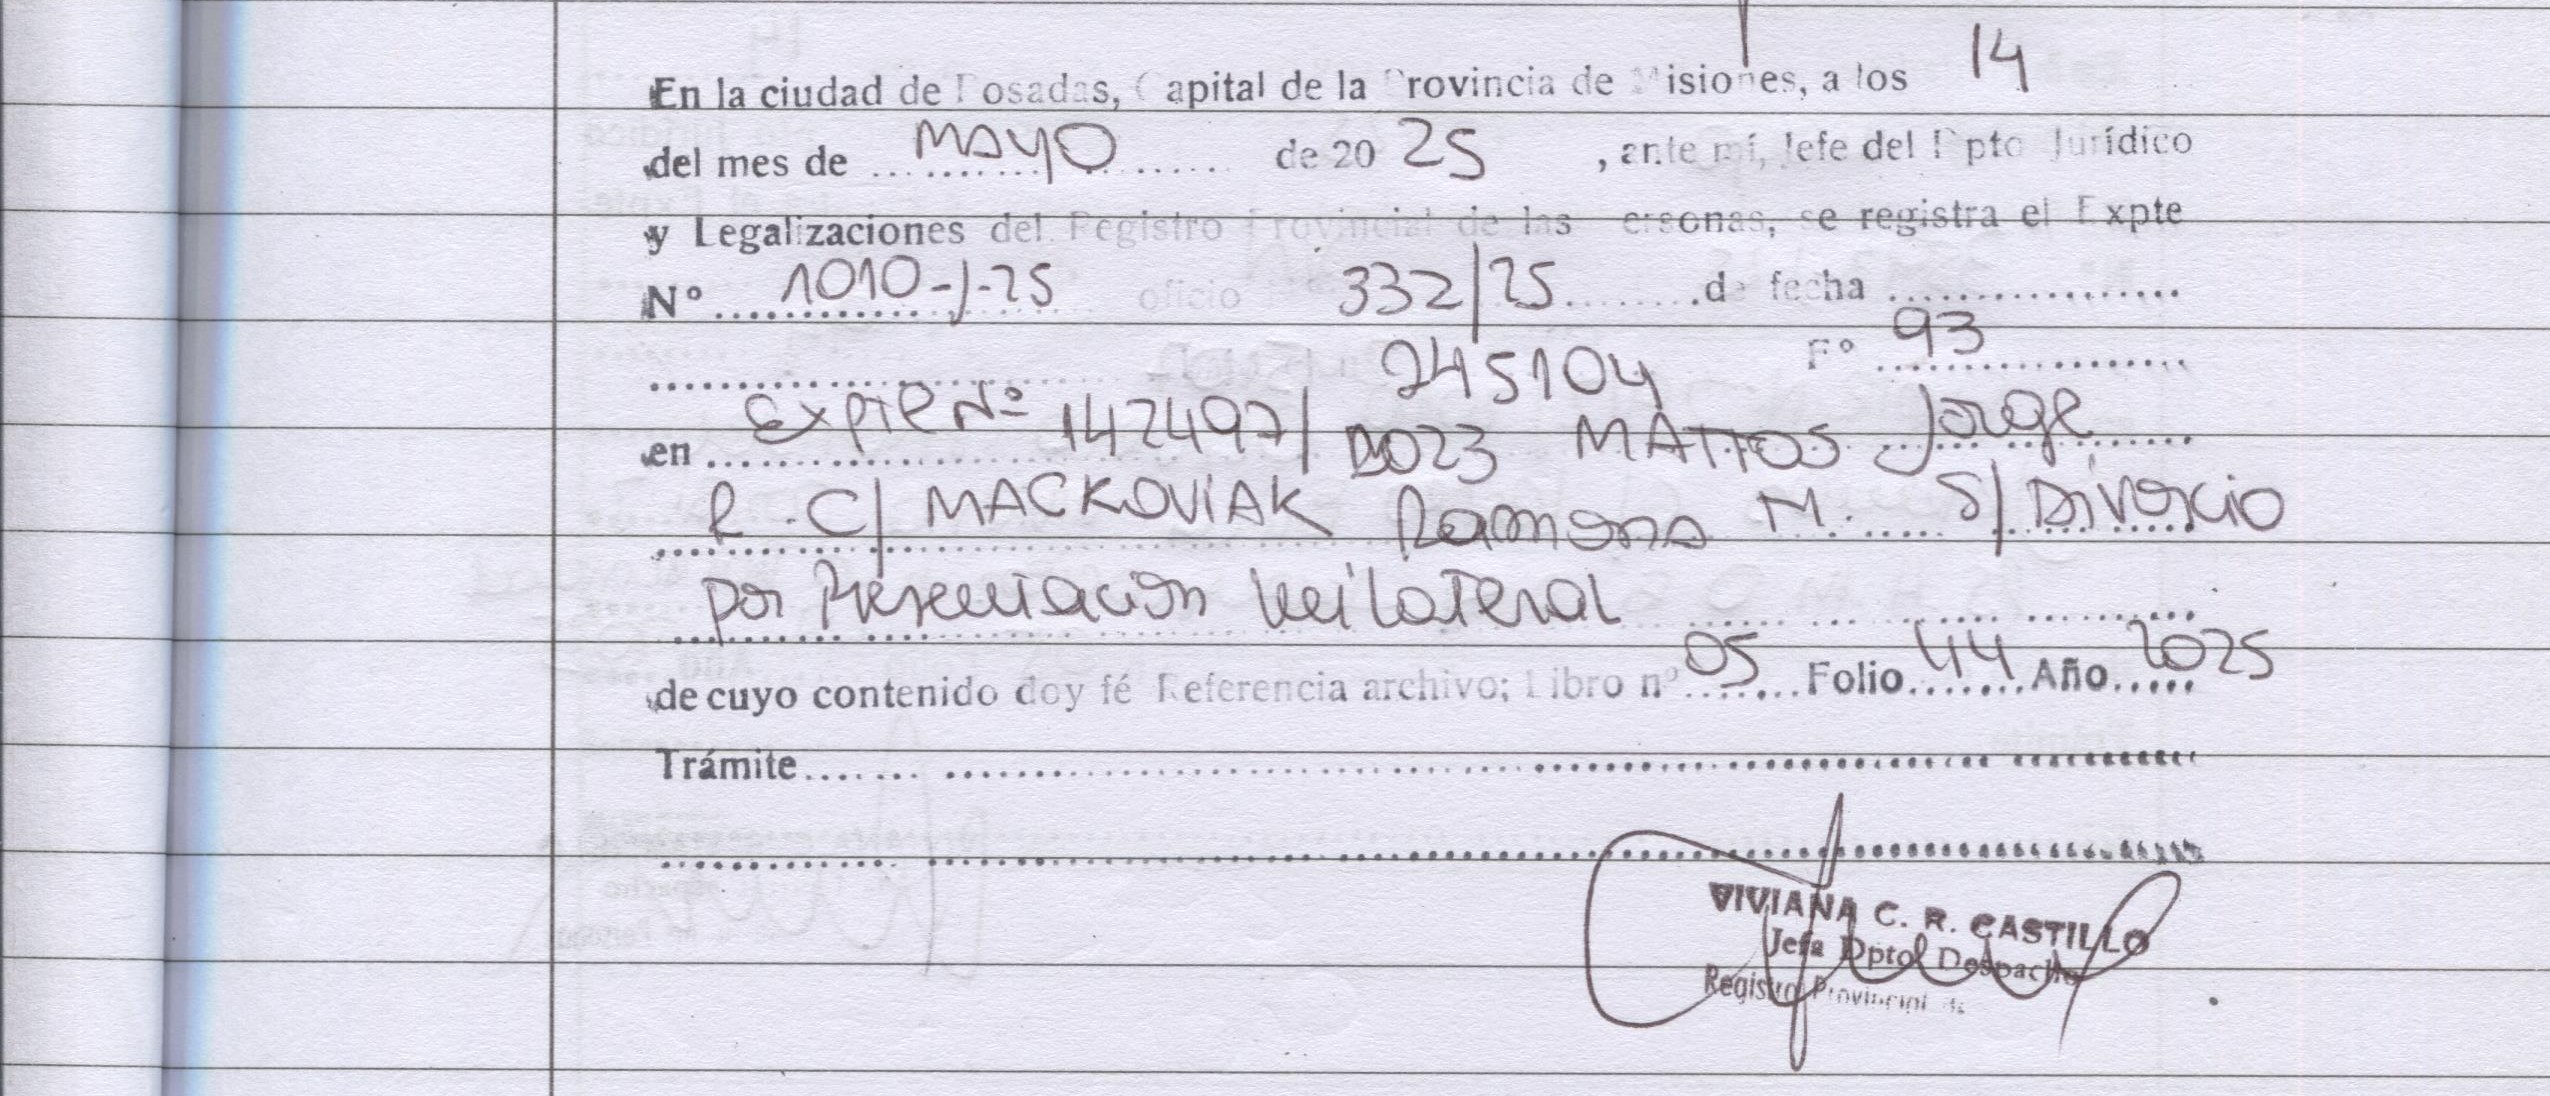 En la ciudad de Posadas, Capital de la Provincia de Misiones, a los 14
del mes de MAYO de 20 25, ante mí, Jefe del Dpto Jurídico
y Legalizaciones del Registro Provincial de las Personas, se registra el Expte
Nº 1010-J-25 oficio 332/25 de fecha
245104 Fº 93
en Expte Nº 142497/2023 MATTOS Jorge
R. C/ MACKOVIAK Ramona M. S/ Divorcio
por Presentacion Unilateral
de cuyo contenido doy fé Referencia archivo; Libro nº 05 Folio 44 Año 2025
Trámite
VIVIANA C. R. CASTILLO
Jefa Dpto Despacho
Registro Provincial de